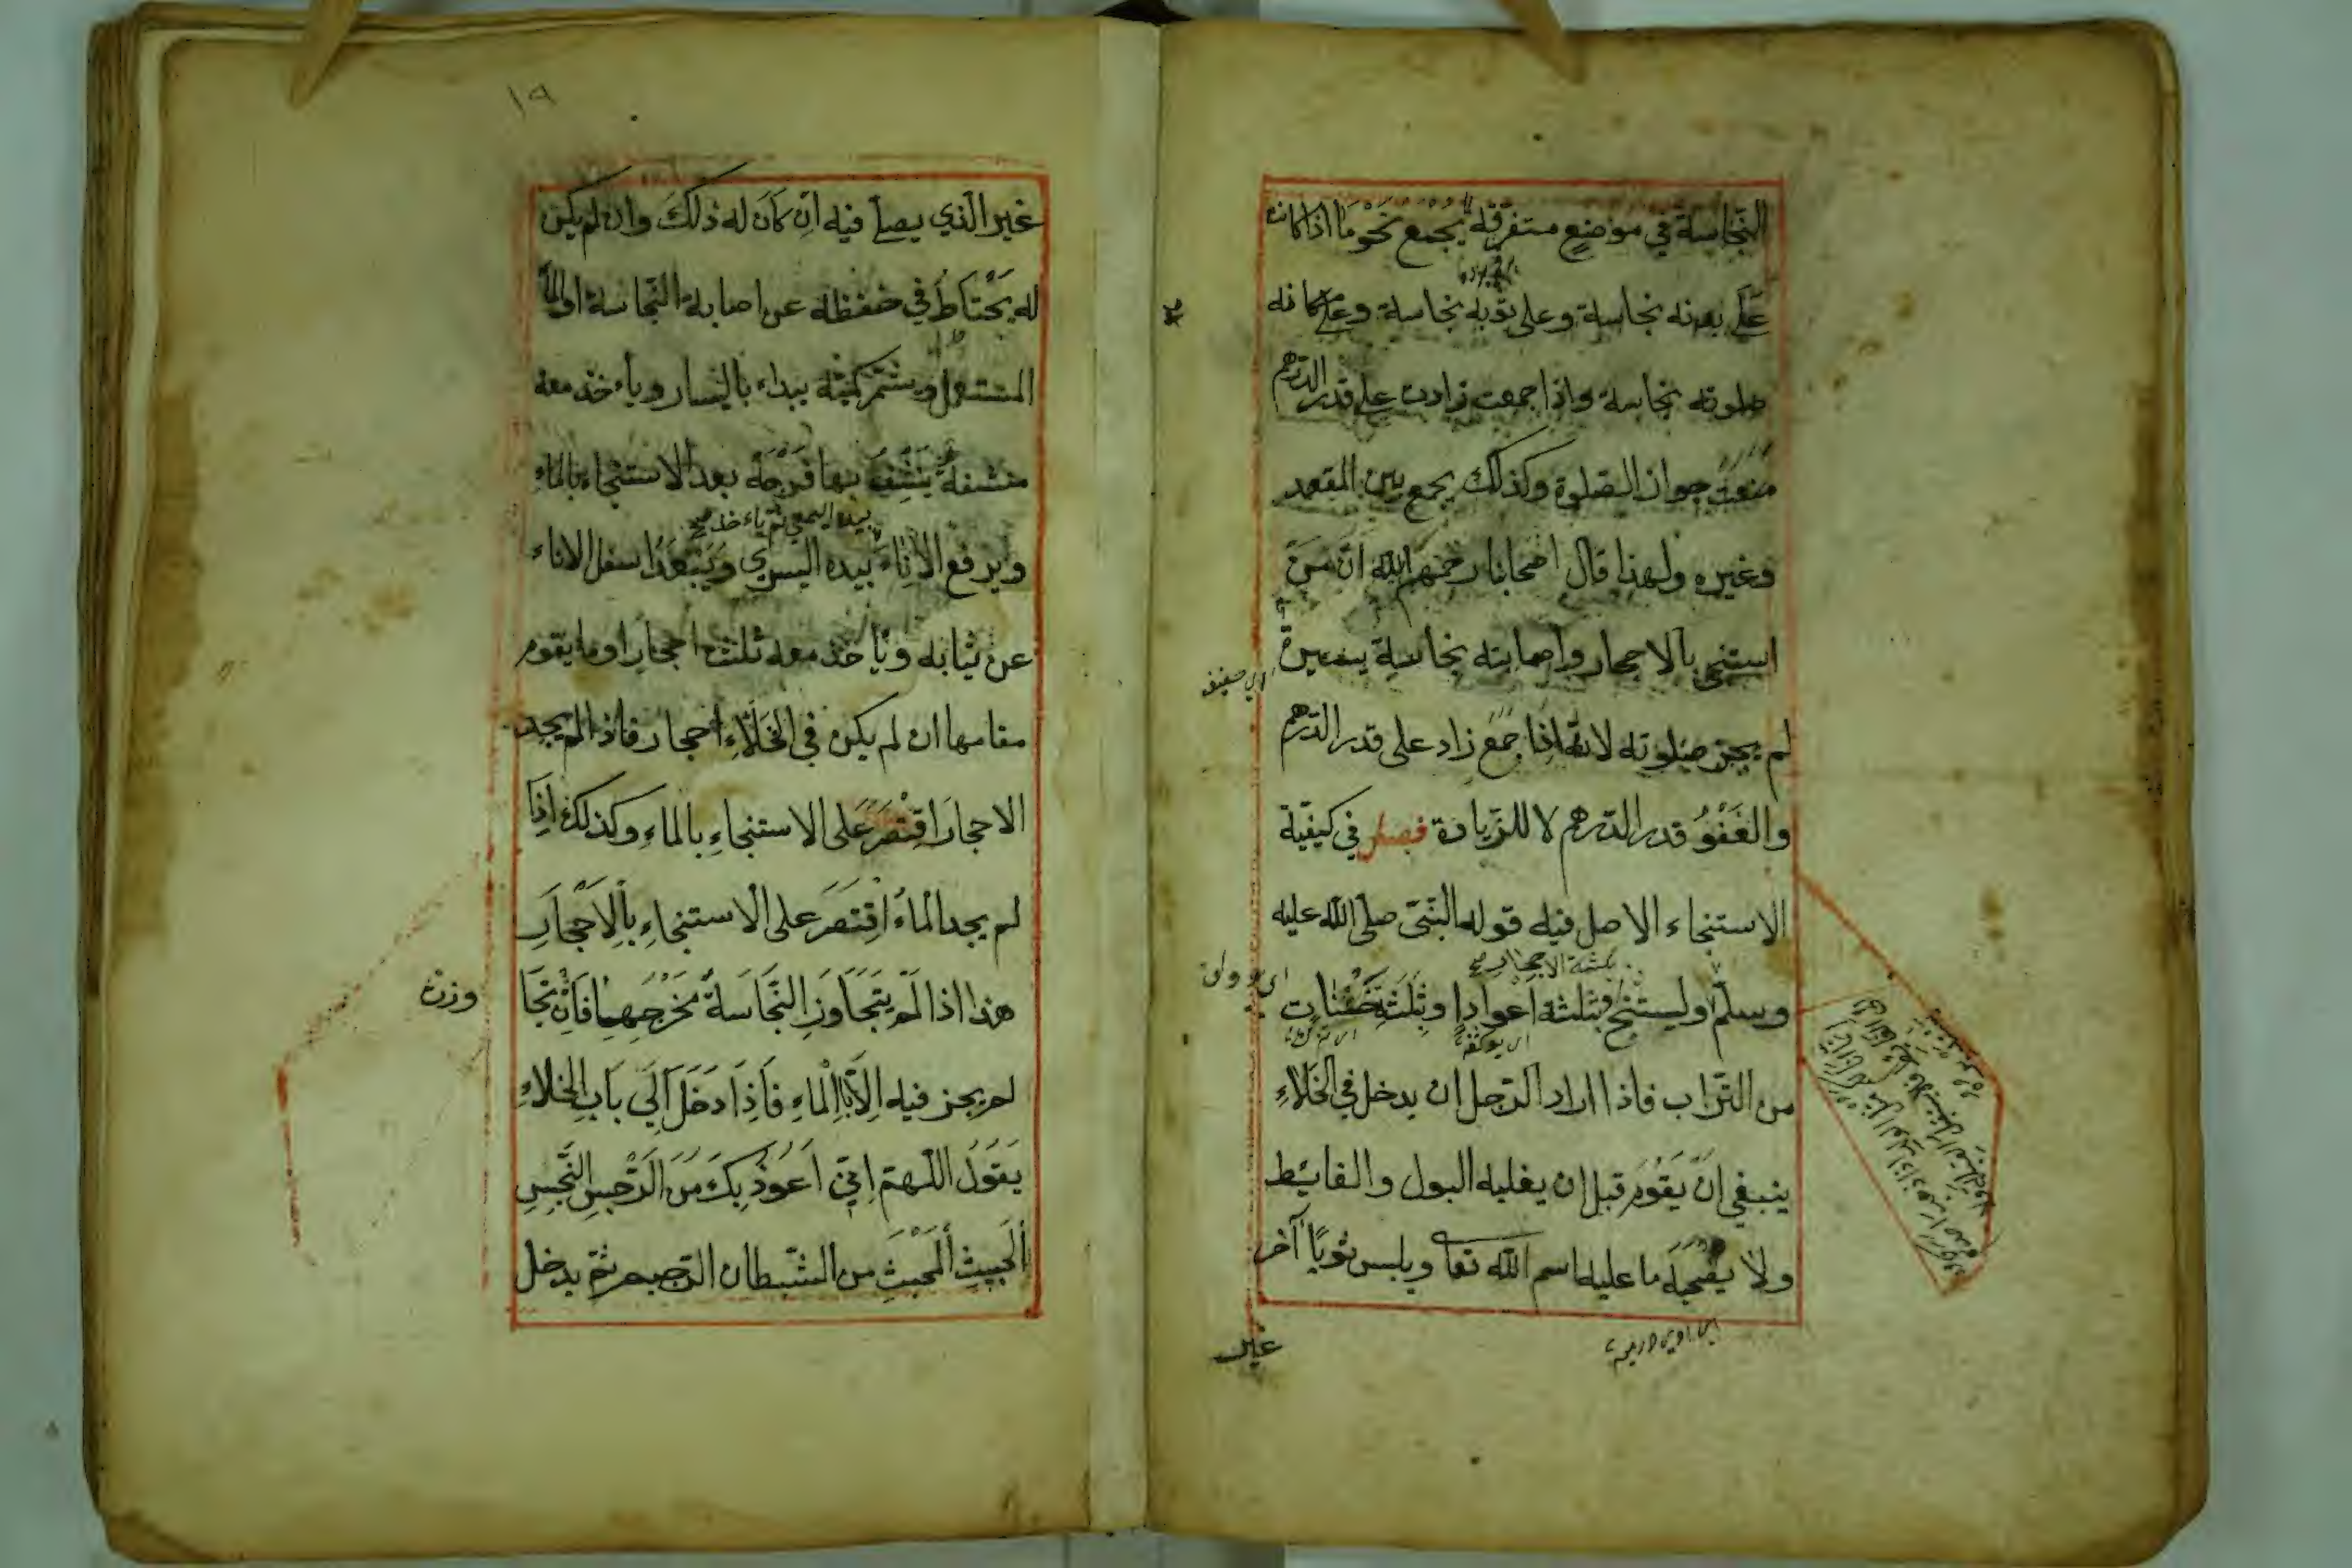 النّجاسة في موضع متفرّقة يُجْمَع نَحْوَ مَا اذا كان
عَلَى بدنه نجاسة وعلى ثوبه نجاسة وعلى مكانه
صلوته نجاسة واذا جمعت زادت على قدر الدّرهم
منعت جواز الصّلوة وكذلك يجمع بين المقعد
وغيره ولهذا قال اصحابنا رحمهم الله انّ مَنْ
استنجى بالاحجار واصابته نجاسة يسيرة
لم يجز صلوته لانّه اذا جُمِعَ زاد على قدر الدّرهم
والعَفْوُ قدر الدّرهم لا للزّيادة فصل في كيفيّة
الاستنجاء الاصل فيه قوله النّبيّ صلّى الله عليه
بثلثة الاحجار صح
وسلّم وليستنج بثلثة اعواد او بثلث حَفَنَاتٍ
من التّراب فاذا اراد الرّجل ان يدخل في الخَلَاءِ
ينبغي انْ يَقُومَ قبل ان يغلبه البول والغائط
ولا يصحبه ما عليه اسم الله تعالى ويلبس ثوبًا آخر
غير
١٩
غير الّذي يصلّي فيه اِنْ كَانَ له ذلكَ وان لم يكن
له يَحْتَاطُ في حفظه عن اصابة النّجاسة او الماء
المستعمل ويشمّر كمّيه يبداء باليسار وياءخذ معه
منشفةً يُنَشِّفُ بها فَرْجَهُ بعد الاستنجاء بالماء
بيده اليمنى ثمّ ياءخذ صح
ويرفع الاناءَ بيده اليسرى ويُبَعِّدُ اسفل الاناء
عن ثيابه ويأخذ معه ثلث احجارٍ او ما يقوم
مقامها ان لم يكن في الخَلَاءِ احجار فاذا لم يجد
الاحجارَ اقْتَصَرَ على الاستنجاءِ بالماءِ وكذلك اِذَا
لم يجد الْماءَ اقْتَصَرَ على الْاستنجاءِ بِالْاَحْجَارِ
هذا اذا لَمْ يَتَجَاوَزِ النَّجَاسَةُ مَخْرَجِهِمَا فَاِنْ تَجَا
وزت
لم يجز فيه اِلَّا بِالْماءِ فَاِذَا دَخَلَ اِلَى بَابِ الخلاءِ
يَقُولُ اللّهمّ اِنّي اَعُوذُ بِكَ مِنَ الرِّجْسِ النَّجِسِ
الْخَبِيثِ الْمُخْبِثِ من الشّيطان الرّجيم ثمّ يدخل